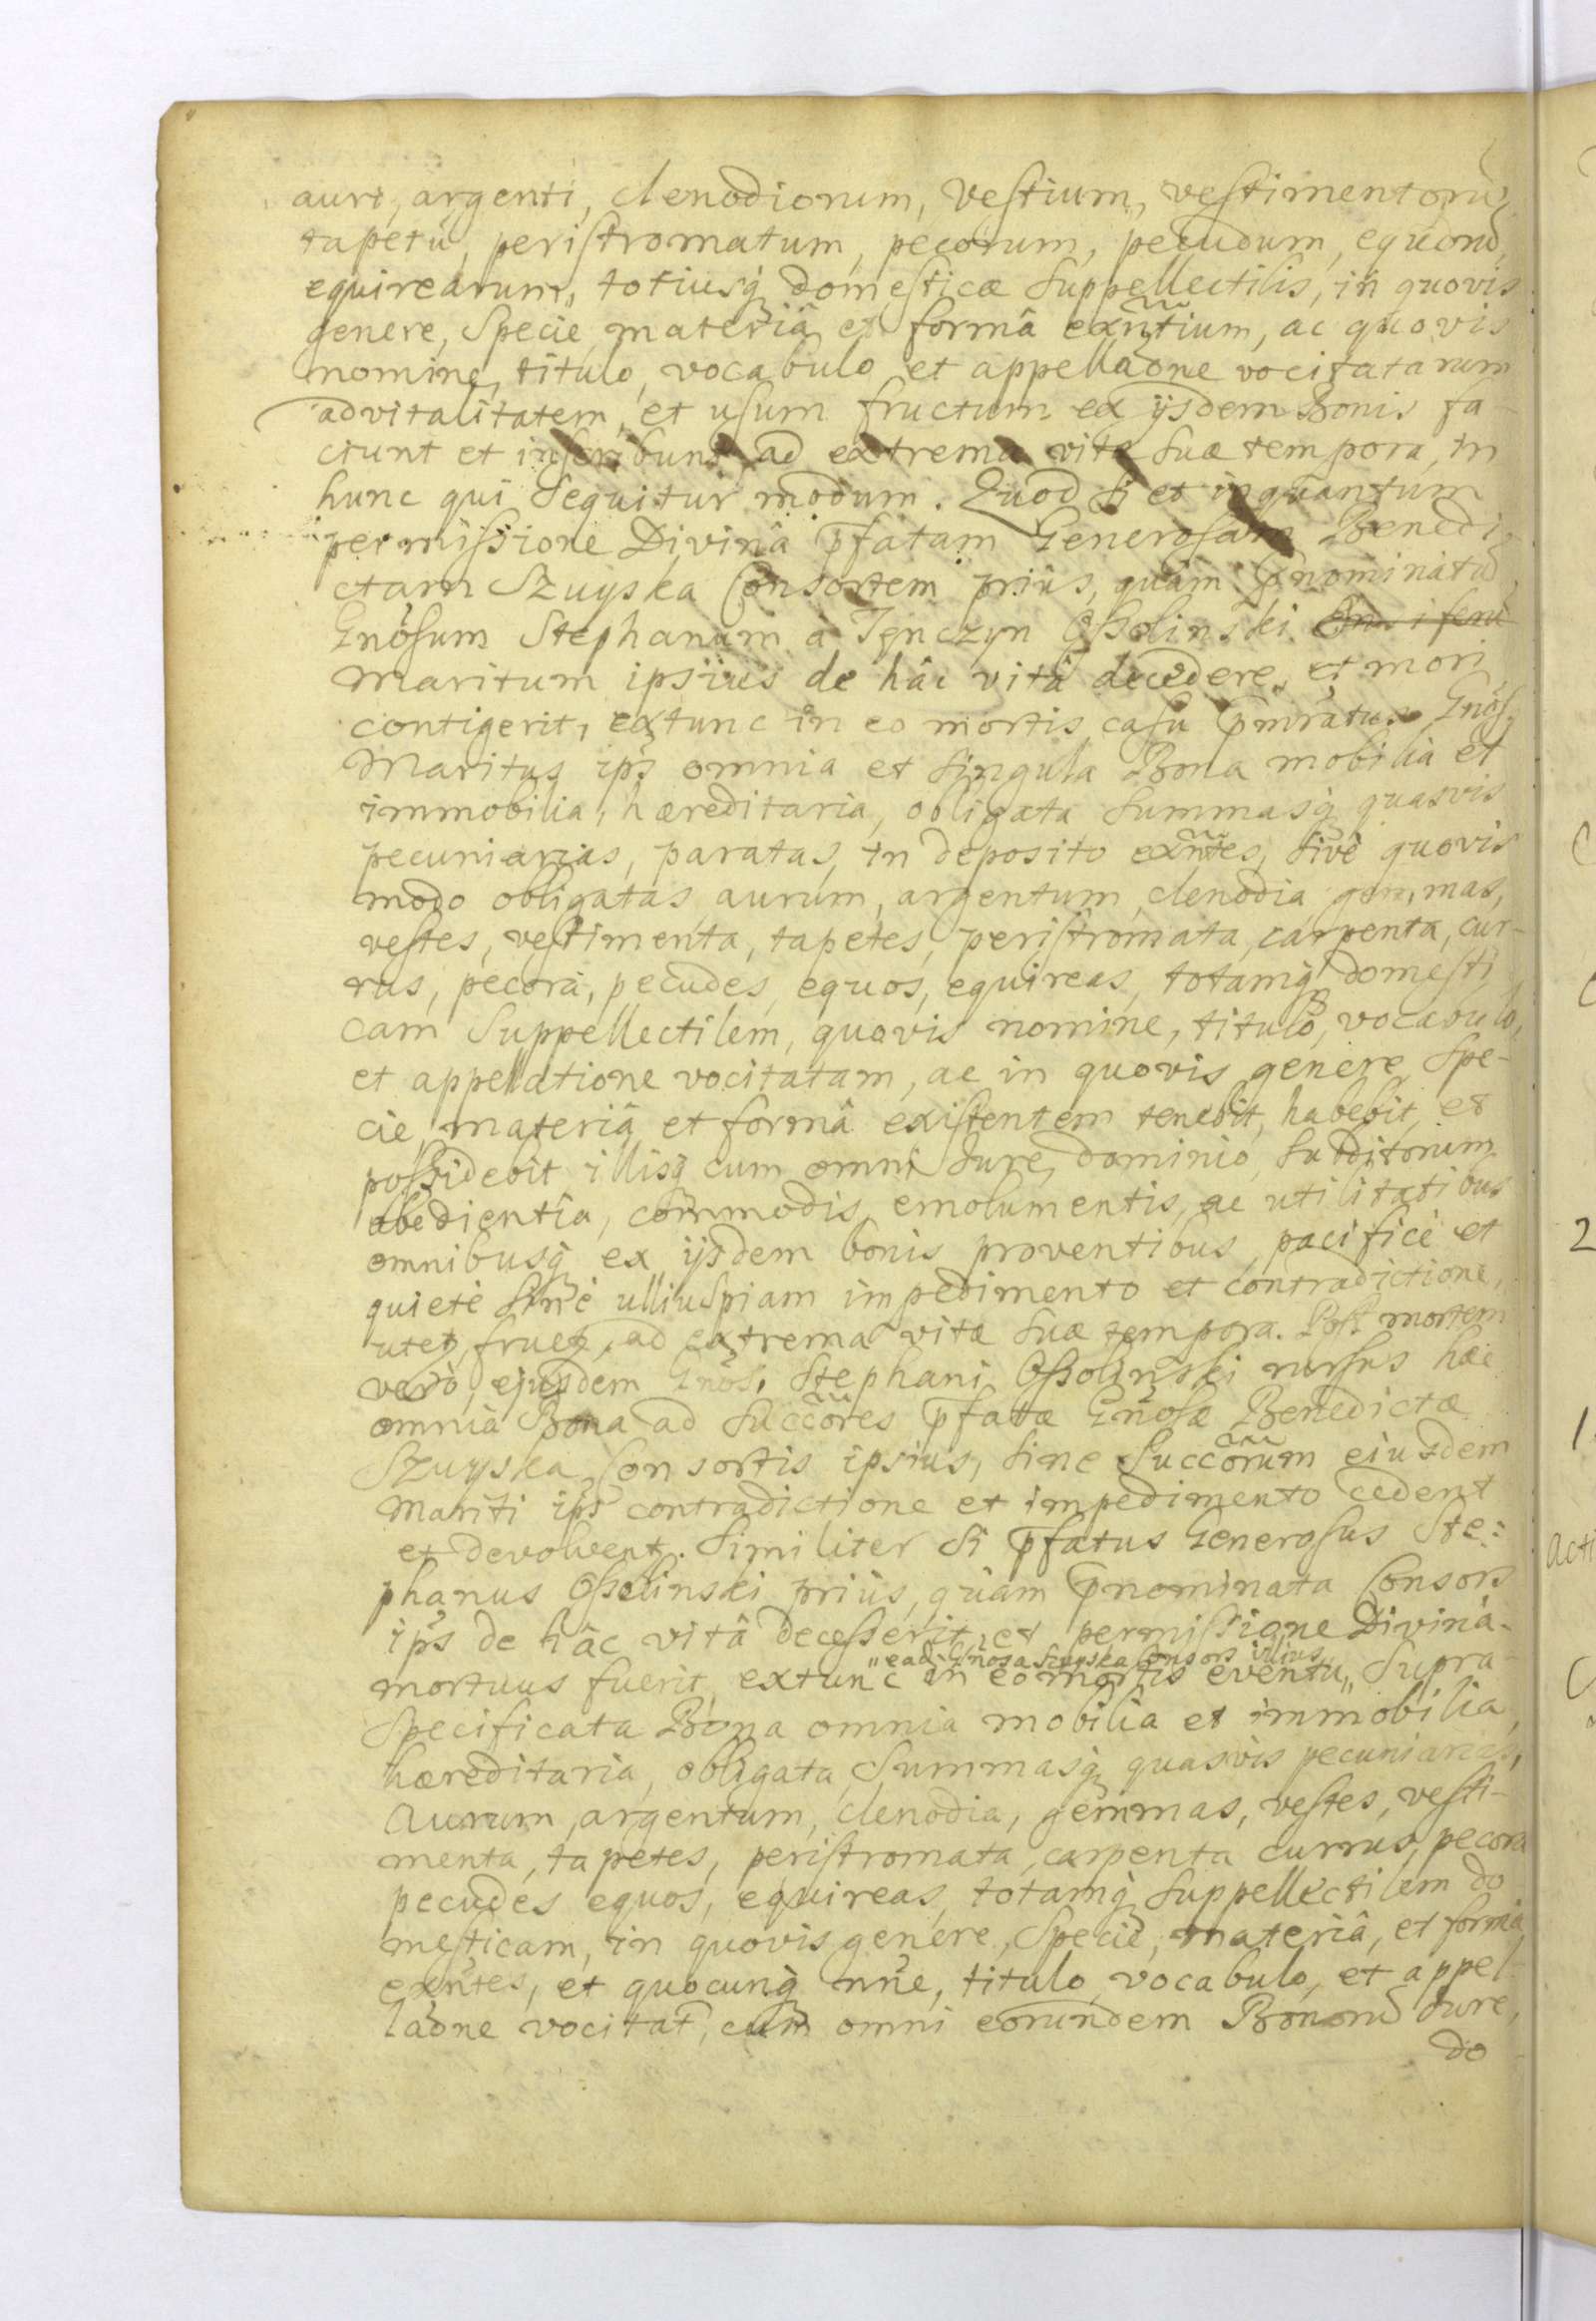 auri, argenti, clenodiorum, vestium, vestimentorũ
tapetũ, peristromatum, pecorum, pecudum, equorũ,
equirearum, totiusq́ domesticæ suppellectilis, in quovis
genere, specie, materiâ et formâ exñtium, ac quovis
nomine, titulo, vocabulo et appellaõne vocitatarum
advitalitatem, et usum fructum ex ijsdem Bonis fa-
ciunt et inscribunt ad extrema vitæ suæ tempora, in
hunc qui sequitur modum. Quod si et inquantum
permissione Divinâ p̄fatam Generosam Benedi-
ctam Szuyska Consortem priùs, quàm p̄nominatũ
Gnõsum Stephanum à Tęnczyn Ossolinski
Maritum ipsius de hâc vitâ decedere, et mori
contigerit, extunc in eo mortis casu p̄mratus Gnõs.
Maritus ips̃ omnia et singula Bona mobilia et
immobilia, hæreditaria, obligata summasq́ quasvis
pecuniarias, paratas, in deposito exñtes, sivè quovis
modo obligatas, aurum, argentum, clenodia, gemmas,
vestes, vestimenta, tapetes, peristromata, carpenta, cur-
rus, pecora, pecudes, equos, equireas, totamq́ domesti
cam suppellectilem, quovis nomine, titulo, vocabulo,
et appellatione vocitatam, ac in quovis genere, spe-
cie, materiâ et formâ existentem tenebit, habebit, et
possidebit, illisq́ cum omni Jure, dominio, subditorum
obedientiâ, commodis, emolumentis, ac utilitatibus
omnibusq́ ex ijsdem bonis proventibus, pacificè et
quietè sinè ulliuspiam impedimento et contradictione,
utet̃, fruet̃, ad extrema vitæ suæ tempora. Post mortem
verò, ejusdem Gnõs. Stephani Ossolinski rursus hæc
omnia Bona ad succõres p̄fatæ Gnõsæ Benedictæ
Szuyska Consortis ipsius, sine succõrum eiusdem
Mariti ips̃ contradictione et impedimento cedent
et devolvent̃. Similiter si p̄fatus Generosus Ste=
phanus Ossolinski priùs, quàm p̄nominata Consors
ips̃ de hâc vitâ decesserit, et permissione Divinâ
"ead. Gnõsa Szuyska Consors illius
mortuus fuerit, extunc in eo mortis eventu, " supra-
specificata Bona omnia mobilia et immobilia,
hæreditaria, obligata, summasq́ quasvis pecuniarias,
aurum, argentum, clenodia, gemmas, vestes, vesti-
menta, tapetes, peristromata, carpenta currus, pecora
pecudes equos, equireas, totamq́ suppellectilem do
mesticam, in quovis genere, specie, materiâ, et formâ
exñtes, et quocunq́ nñe, titulo, vocabulo, et appel-
laõne vocitat̃, cum omni eorundem Bonorũ Jure,
do-